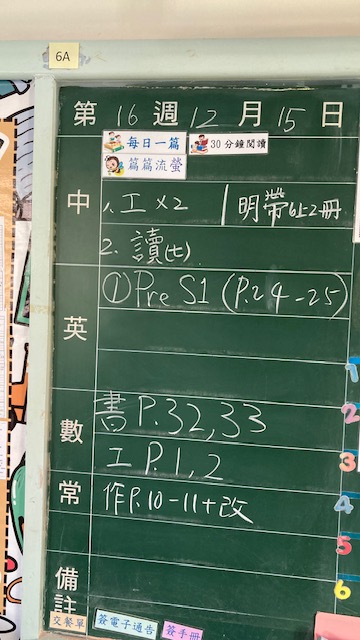 6A
第 16 週 12 月 15 日
每日一篇 30分鐘閱讀
篇篇流螢
中 1. 工 x2 明帶6上2冊
2. 讀(七)
英 ① Pre S1 (P.24-25)
數 書 P.32,33
工 P.1,2
常 作 P.10-11+改
備註
交餐單 簽電子通告 簽手冊
1
2
3
4
5
6